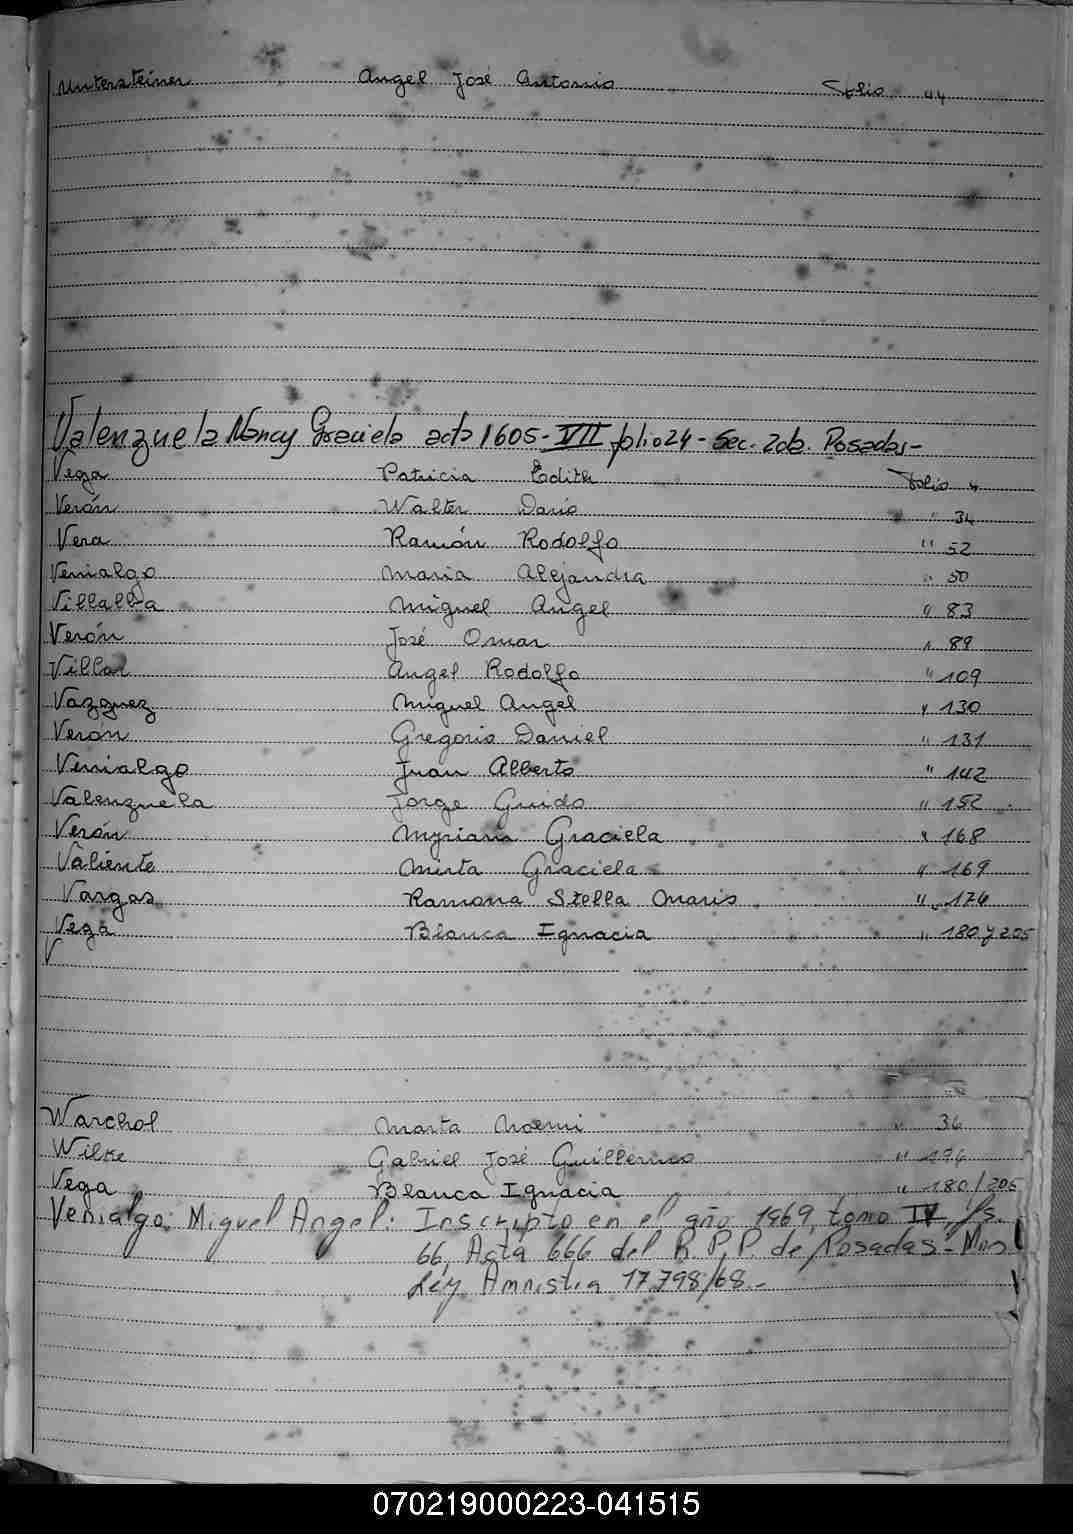 Untersteiner Angel José Antonio Folio 44
Valenzuela Nancy Graciela acta 1605-VII folio 24-Sec. 2da. Posadas-
Vega Patricia Edith Folio 4
Verón Walter Darío " 34
Vera Ramón Rodolfo " 52
Venialgo Maria Alejandra " 50
Villalba Miguel Angel " 83
Verón José Omar " 89
Villar Angel Rodolfo " 109
Vazquez Miguel Angel " 130
Verón Gregorio Daniel " 131
Venialgo Juan Alberto " 142
Valenzuela Jorge Guido " 152
Verón Myriam Graciela " 168
Valiente Mirta Graciela " 169
Vargas Ramona Stella Maris " 174
Vega Blanca Ignacia " 180 y 205
V
Warchol Marta Noemi " 36
Wilke Gabriel José Guillermo "
Vega Blanca Ignacia " 180/205
Venialgo: Miguel Angel: Inscripto en el año 1969, tomo IV, fs.
66, Acta 666 del R.P.P. de Posadas-Mnes
Ley Amnistia 17.798/68.-
070219000223-041515